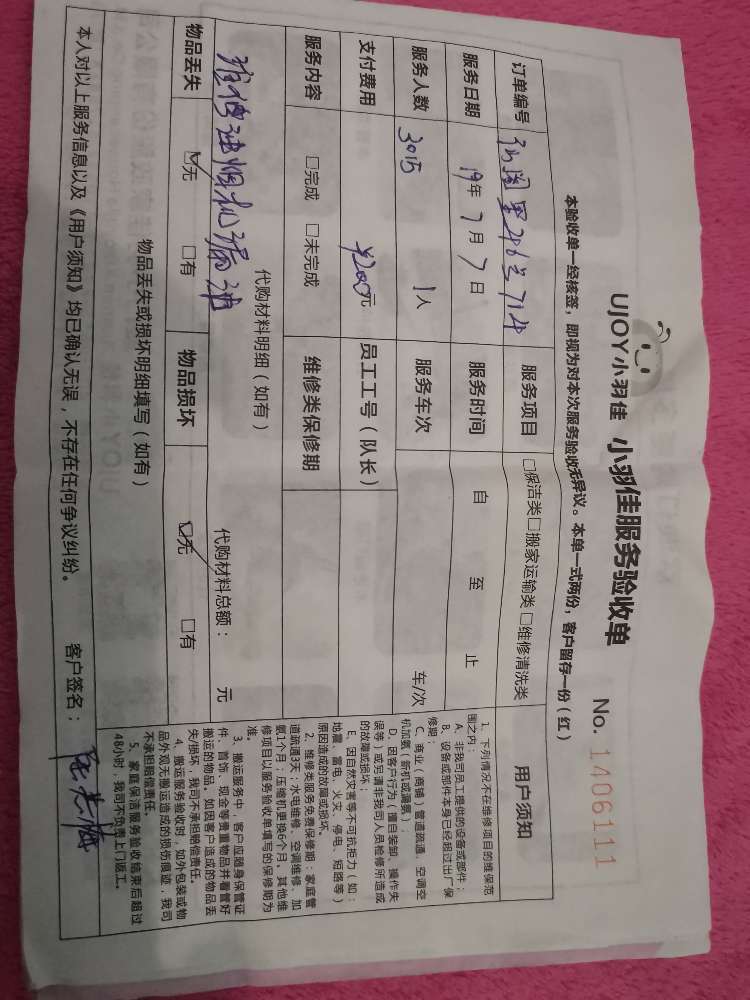 UJOY小羽佳 小羽佳服务验收单
No. 1406111
本验收单一经核签，即视为对本次服务验收无异议。本单一式两份，客户留存一份（红）
订单编号
服务项目 □保洁类□搬家运输类□维修清洗类
服务日期 19年7月7日 服务时间 自 至 止
服务人数 3015 1人 服务车次 车/次
支付费用 ¥200元 员工工号（队长）
服务内容 □完成 □未完成 维修类保修期
代购材料明细（如有） 代购材料总额： 元
物品丢失 ☑无 □有 物品损坏 ☑无 □有
物品丢失或损坏明细填写（如有）
本人对以上服务信息以及《用户须知》均已确认无误，不存在任何争议纠纷。 客户签名：
用户须知
1、下列情况不在维修项目的维保范
围之内：
A、非我司员工提供的设备或部件；
B、设备或部件本身已经超过出厂保
修期；
C、商业（商铺）管道疏通、空调空
机加氨（新机或漏氨）；
D、因客户行为（擅自装卸、操作失
误等）或另请非我司人员检修所造成
的故障或损坏；
E、因自然灾害等不可抗拒力（如：
地震、雷电、火灾、停电、短路等）
原因造成的故障或损坏。
2、维修类服务免费保修期：家庭管
道疏通3天；水电维修、空调维修、加
氨1个月；压缩机更换6个月。其他维
修项目以服务验收单填写的保修期为
准。
3、搬运服务中，客户应随身保管证
件、首饰、现金等贵重物品并看管好
搬运的物品。如因客户造成的物品丢
失/损坏，我司不承担赔偿责任。
4、搬运服务验收时，如外包装或物
品外观无搬运造成的损伤痕迹，我司
不承担赔偿责任。
5、家庭保洁服务验收结束后超过
48小时，我司不负责上门返工。